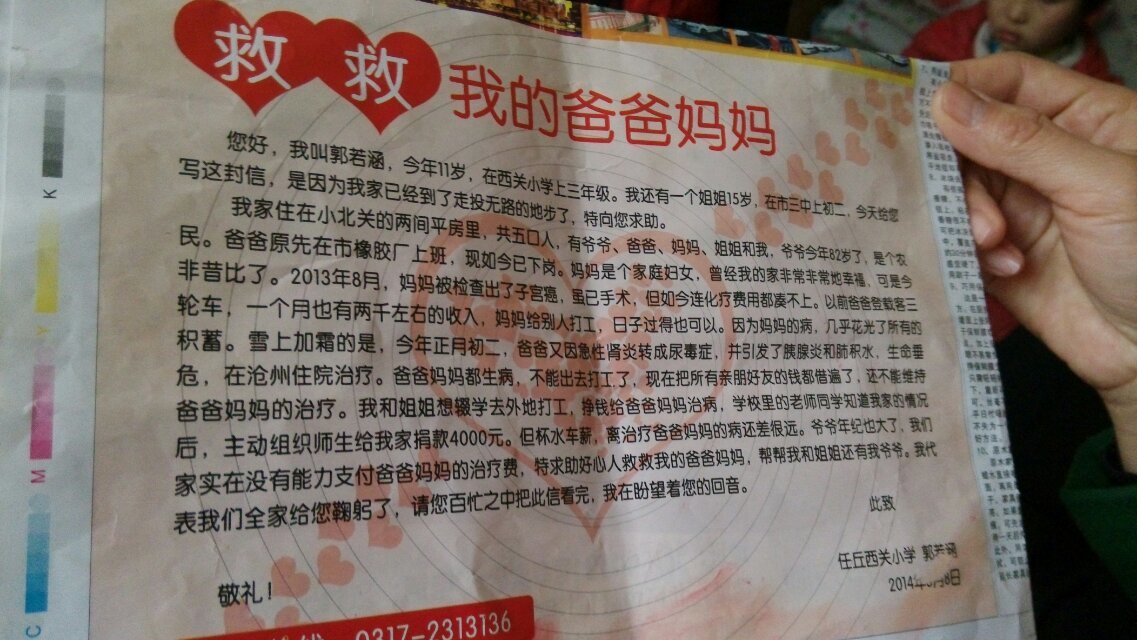 救救我的爸爸妈妈
您好，我叫郭若涵，今年11岁，在西关小学上三年级。我还有一个姐姐15岁，在市三中上初二，今天给您
写这封信，是因为我家已经到了走投无路的地步了，特向您求助。
我家住在小北关的两间平房里，共五口人，有爷爷、爸爸、妈妈、姐姐和我，爷爷今年82岁了，是个农
民。爸爸原先在市橡胶厂上班，现如今已下岗。妈妈是个家庭妇女，曾经我的家非常非常地幸福，可是今
非昔比了。2013年8月，妈妈被检查出了子宫癌，虽已手术，但如今连化疗费用都凑不上。以前爸爸登载客三
轮车，一个月也有两千左右的收入，妈妈给别人打工，日子过得也可以。因为妈妈的病，几乎花光了所有的
积蓄。雪上加霜的是，今年正月初二，爸爸又因急性肾炎转成尿毒症，并引发了胰腺炎和肺积水，生命垂
危，在沧州住院治疗。爸爸妈妈都生病，不能出去打工了，现在把所有亲朋好友的钱都借遍了，还不能维持
爸爸妈妈的治疗。我和姐姐想辍学去外地打工，挣钱给爸爸妈妈治病，学校里的老师同学知道我家的情况
后，主动组织师生给我家捐款4000元。但杯水车薪，离治疗爸爸妈妈的病还差很远。爷爷年纪也大了，我们
家实在没有能力支付爸爸妈妈的治疗费，特求助好心人救救我的爸爸妈妈，帮帮我和姐姐还有我爷爷。我代
表我们全家给您鞠躬了，请您百忙之中把此信看完，我在盼望着您的回音。
此致
敬礼！
任丘西关小学 郭若涵
2014年 月8日
0317-2313136
K
Y
M
C